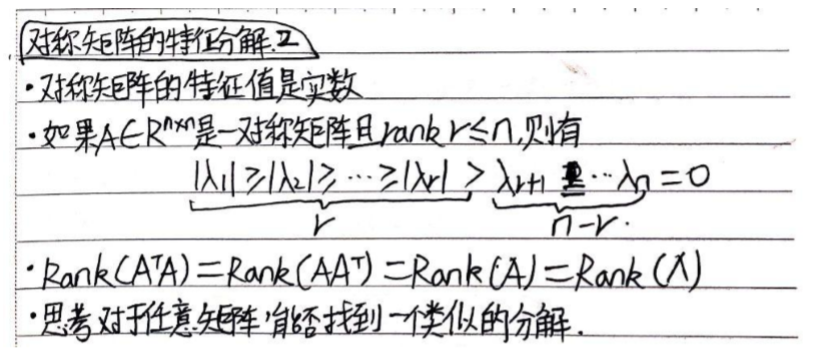 对称矩阵的特征分解.2
·对称矩阵的特征值是实数
·如果A∈R^{n×n}是一对称矩阵且rank r≤n,则有
|λ₁|≥|λ₂|≥…≥|λr|>λr+1 = …λn=0
r n-r.
·Rank(AᵀA)=Rank(AAᵀ)=Rank(A)=Rank(Λ)
·思考对于任意矩阵,能否找到一个类似的分解.